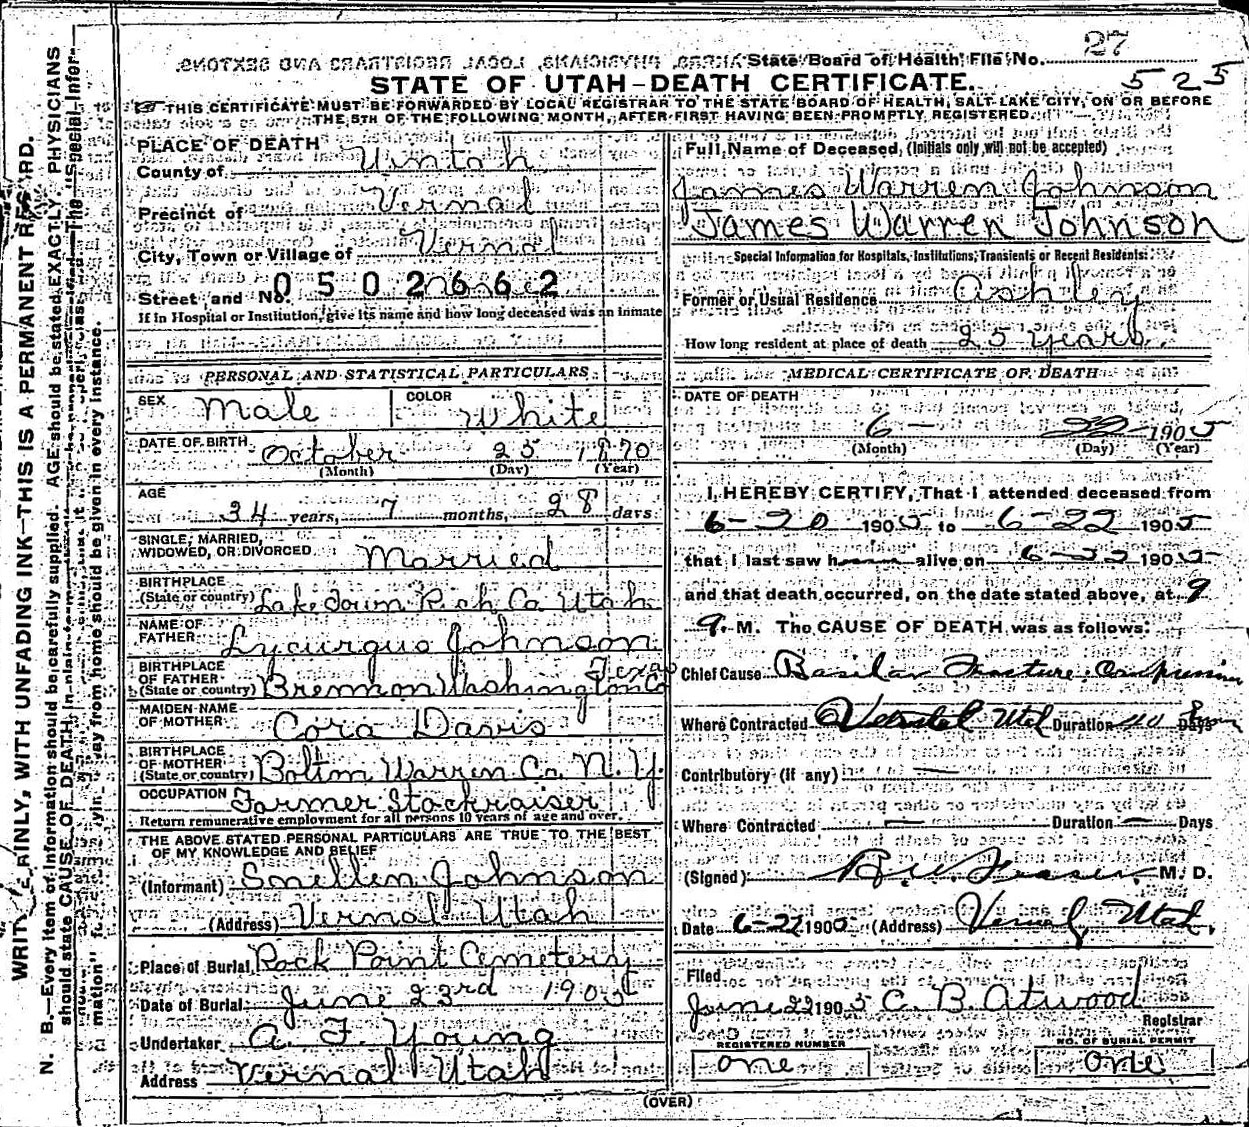 27
State Board of Health File No.
525
STATE OF UTAH-DEATH CERTIFICATE.
THIS CERTIFICATE MUST BE FORWARDED BY LOCAL REGISTRAR TO THE STATE BOARD OF HEALTH, SALT LAKE CITY, ON OR BEFORE
THE 5TH OF THE FOLLOWING MONTH, AFTER FIRST HAVING BEEN PROMPTLY REGISTERED.
PLACE OF DEATH
County of Uintah
Precinct of Vernal
City, Town or Village of Vernal
Street and No. 0502662
If in Hospital or Institution, give its name and how long deceased was an inmate
PERSONAL AND STATISTICAL PARTICULARS
SEX Male COLOR White
DATE OF BIRTH October 25 1870
(Month) (Day) (Year)
AGE
34 years, 7 months, 28 days
SINGLE, MARRIED,
WIDOWED, OR DIVORCED Married
BIRTHPLACE
(State or country) Laketown Rich Co Utah
NAME OF
FATHER Lycurgus Johnson
BIRTHPLACE
OF FATHER Texas
(State or country) Brennon Washington Co
MAIDEN NAME
OF MOTHER Cora Davis
BIRTHPLACE
OF MOTHER
(State or country) Bolton Warren Co. N. Y.
OCCUPATION Farmer Stockraiser
Return remunerative employment for all persons 10 years of age and over.
THE ABOVE STATED PERSONAL PARTICULARS ARE TRUE TO THE BEST
OF MY KNOWLEDGE AND BELIEF
(Informant) Snellen Johnson
(Address) Vernal Utah
Place of Burial Rock Point Cemetery
Date of Burial June 23rd 1905
Undertaker A. F. Young
Address Vernal Utah
Full Name of Deceased, (Initials only will not be accepted)
James Warren Johnson
James Warren Johnson
Special Information for Hospitals, Institutions, Transients or Recent Residents:
Former or Usual Residence Ashley
How long resident at place of death 25 years
MEDICAL CERTIFICATE OF DEATH
DATE OF DEATH
6 - 22 - 1905
(Month) (Day) (Year)
I HEREBY CERTIFY, That I attended deceased from
6-20 1905 to 6-22 1905
that I last saw h alive on 6-22 1905
and that death occurred, on the date stated above, at 9
M. The CAUSE OF DEATH was as follows:
Chief Cause Basilar Fracture Compression
Where Contracted Utah Duration Days
Contributory (If any)
Where Contracted Duration Days
(Signed) Fraser M. D.
Date 6-22 1905 (Address) Vernal, Utah.
Filed
June 22 1905 C. B. Atwood
Registrar
REGISTERED NUMBER
one
NO. OF BURIAL PERMIT
one
(OVER)
N. B.—Every item of information should be carefully supplied. AGE should be stated EXACTLY. PHYSICIANS
should state CAUSE OF DEATH in plain terms, The "Special Infor-
mation" away from home should be given in every instance.
WRITE PLAINLY, WITH UNFADING INK—THIS IS A PERMANENT RECORD.